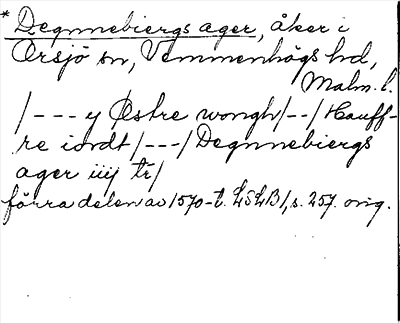 * Degnnebiergs ager, åker i
Örsjö sn, Vemmenhögs hd,
Malm. l.
/--- y Østre wongh/--/Hauff-
re iordt/---/Degnnebiergs
ager iiij tr/
förra delen av 1570-t. LSLB 1, s. 257. orig.